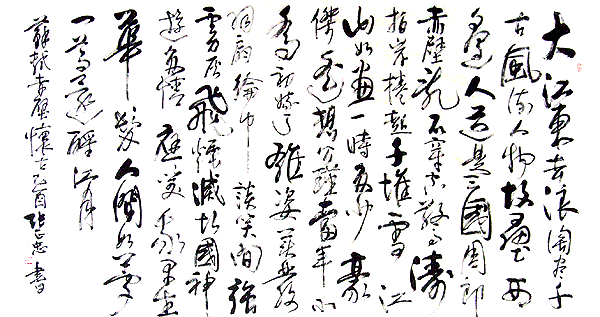 大江東去浪淘尽千
古風流人物故壘西
邊人道是三國周郎
赤壁乱石穿空驚濤
拍岸捲起千堆雪江
山如畫一時多少豪
傑遙想公瑾當年小
喬初嫁了雄姿英發
羽扇綸巾談笑間強
虜灰飛煙滅故國神
遊多情應笑我早生
華髮人間如夢
一尊還酹江月
蘇軾赤壁懷古乙酉張忠書